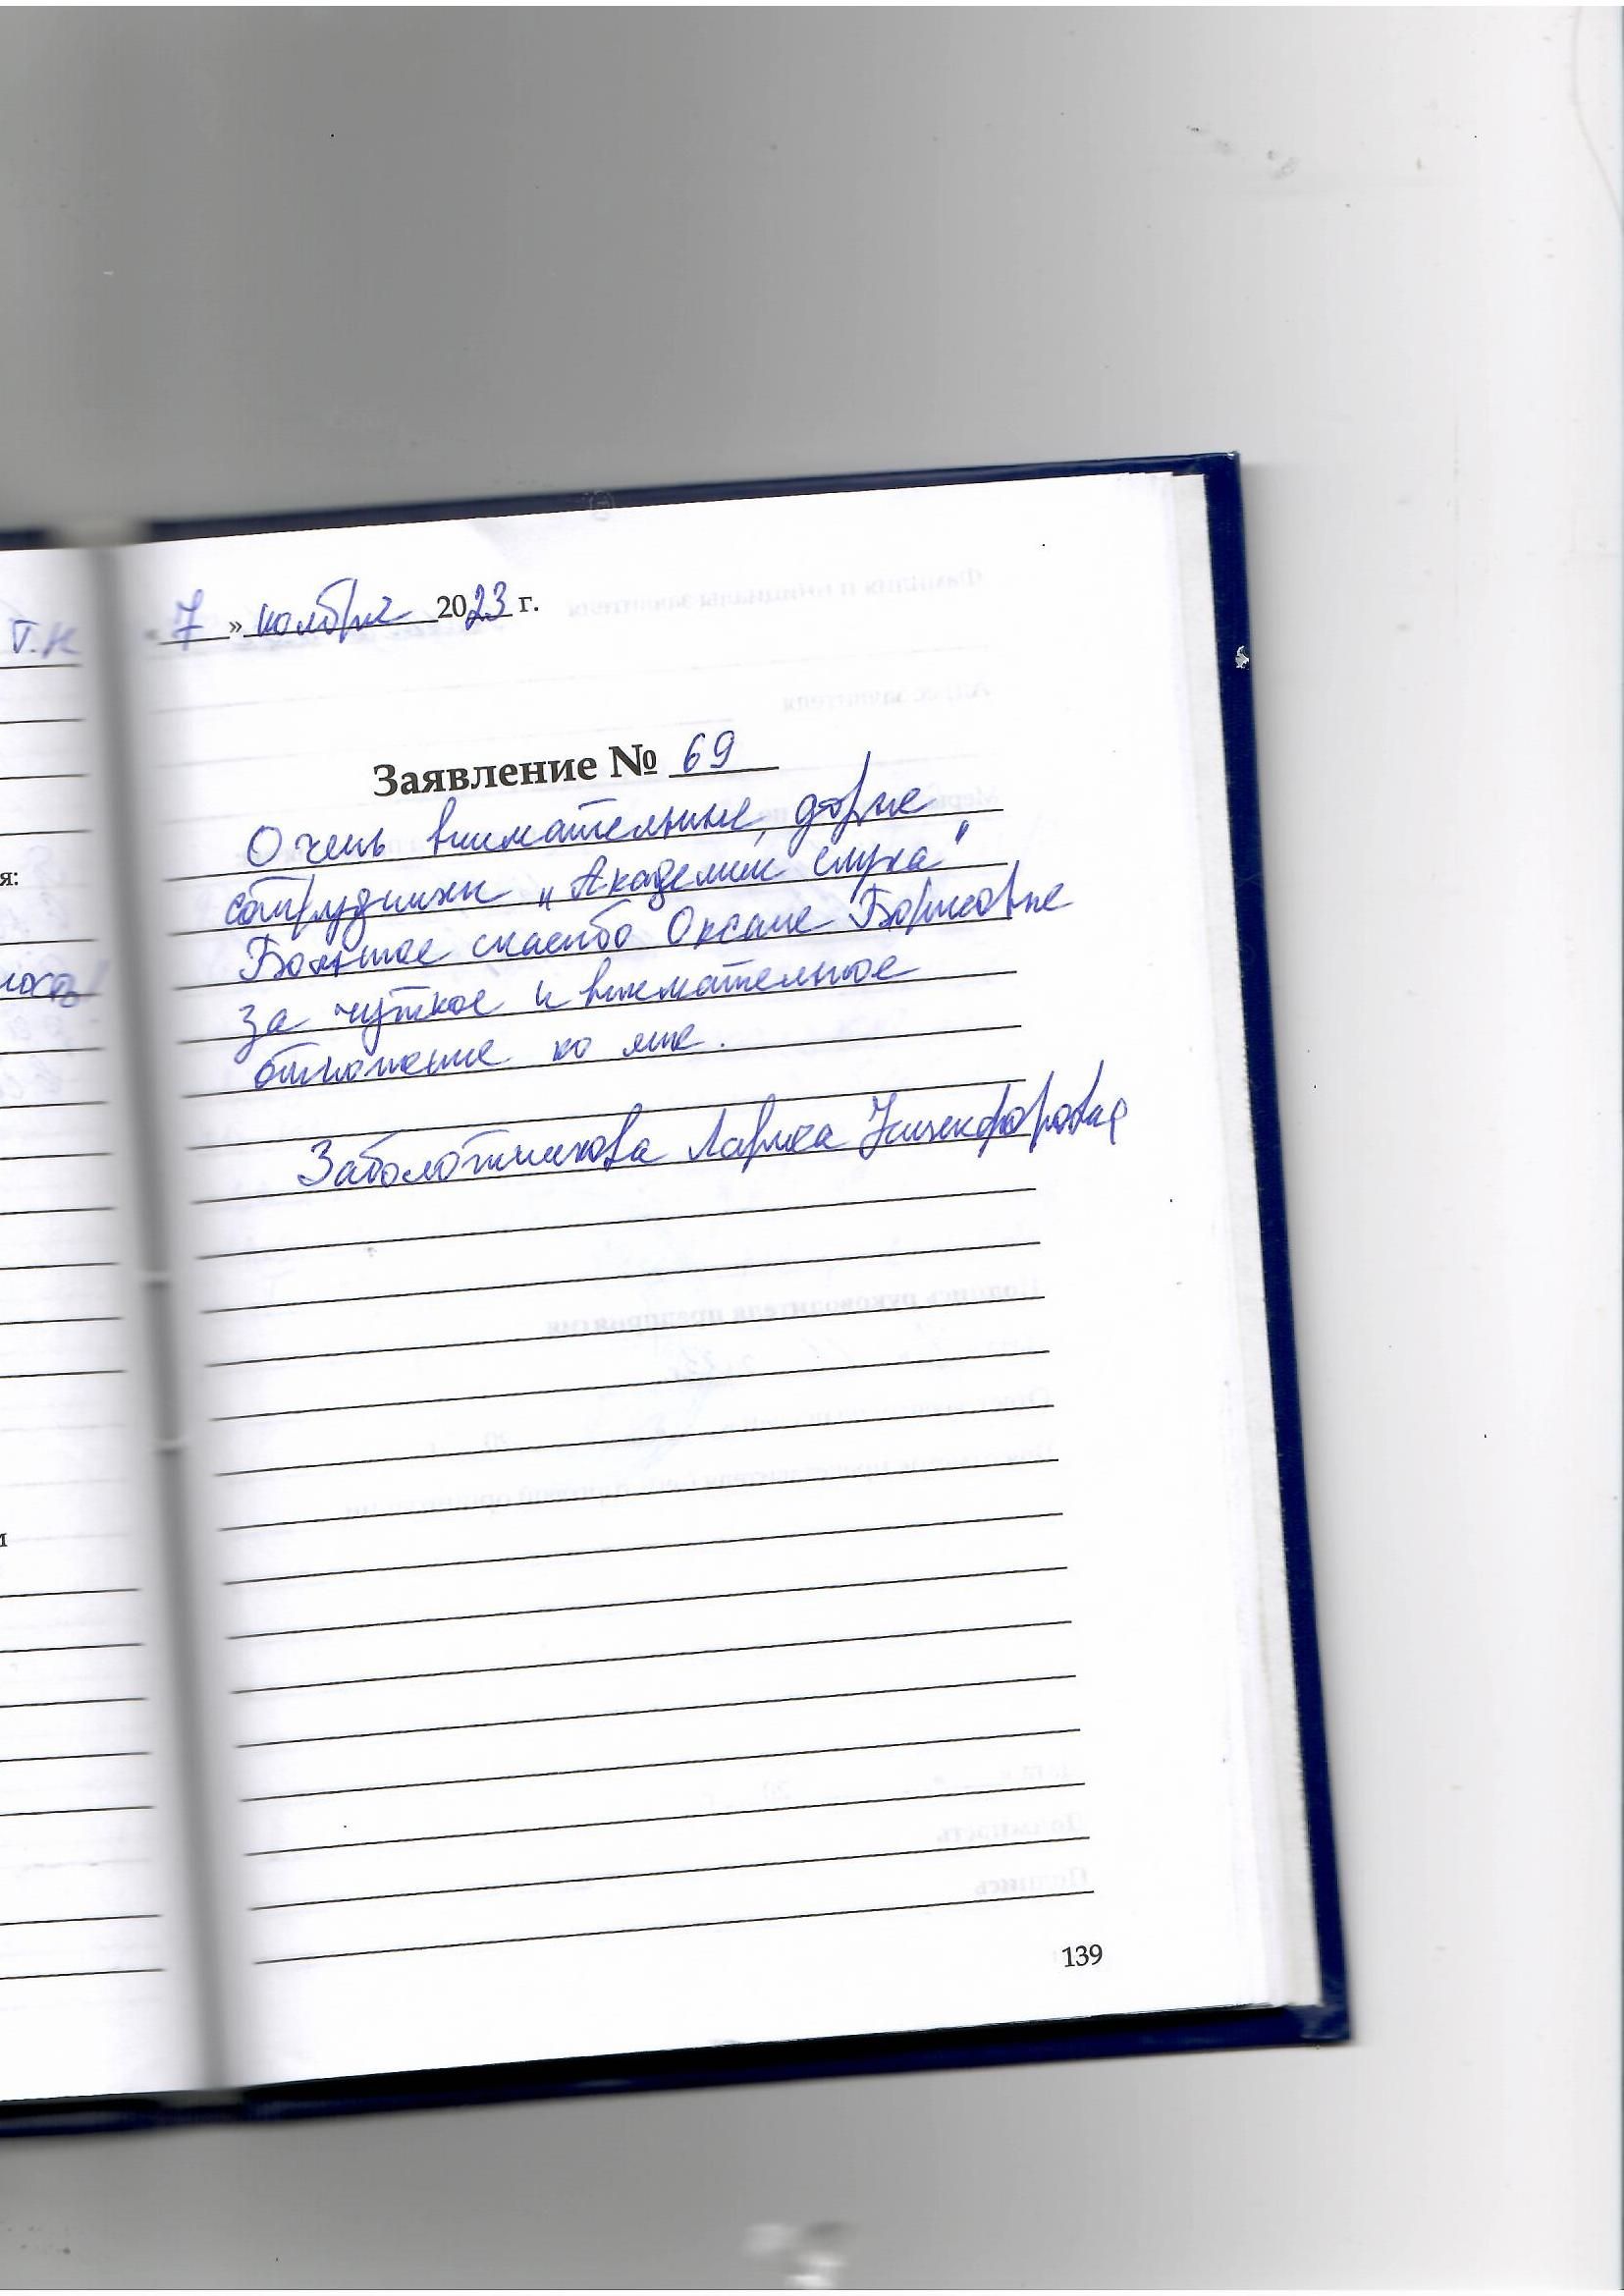 « 7 » ноября 2023 г.
Заявление № 69
Очень внимательные, добрые
сотрудники „Академии слуха"
Большое спасибо Оксане Борисовне
за чуткое и внимательное
отношение ко мне.
Заболотникова Лариса Никифоровна
139
Т.Н
я: